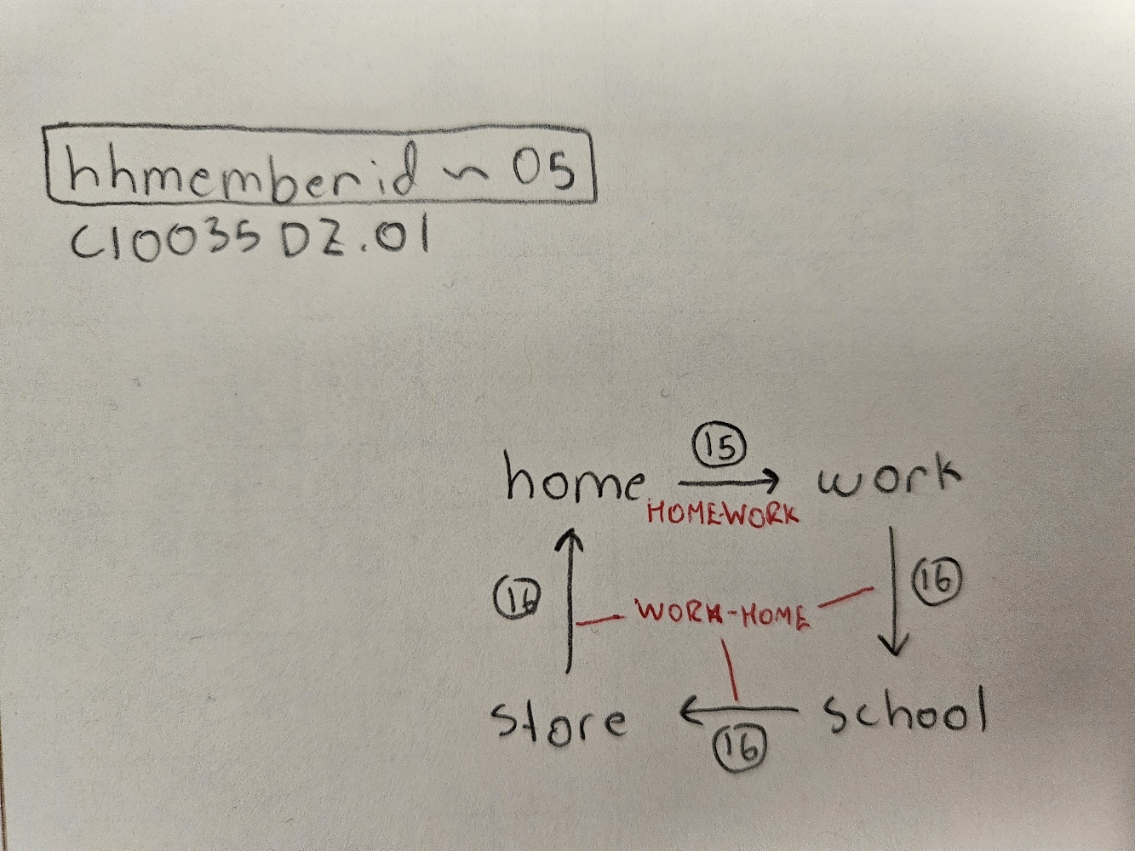 hhmemberid ~ 05
C10035DZ.01
15
home → work
HOME-WORK
16
WORK-HOME
16
store ← school
16